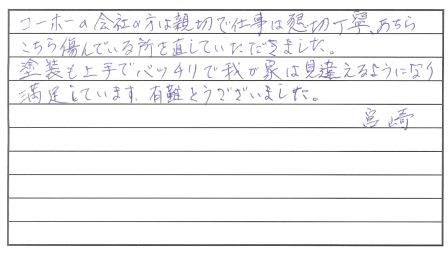 コーホーの会社の方は親切で仕事は懇切丁寧、あちら
こちら傷んでいる所を直していただきました。
塗装も上手でバッチリで我が家は見違えるようになり
満足しています。有難とうございました。
宮崎